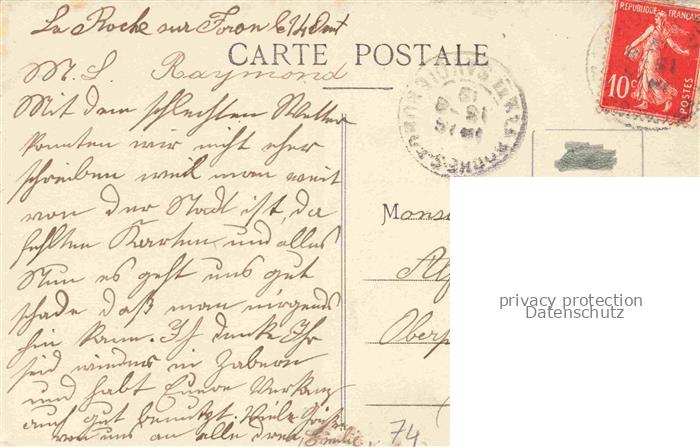 La Roche sur Foron le 14 Août
CARTE POSTALE
M. L. Raymond
Mit dem schlechten Wetter
konnten wir nicht eher
schreiben weil man weit
von der Stadt ist, da
fehlten Karten und alles
Nun es geht uns gut
schade daß man nirgends
hin kann. Ich denke Ihr
seid wieder in Zabern
und habt Euere
auch gut benutzt. Viele Grüße
von uns an alle drei, Emilie.
REPUBLIQUE FRANÇAISE
10c
POSTES
Mons
Al
Ober
74
privacy protection
Datenschutz